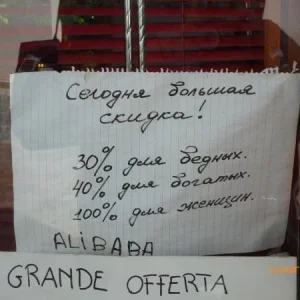 Сегодня большая
скидка!
30% для бедных.
40% для богатых.
100% для женщин.
ALIBABA
GRANDE OFFERTA